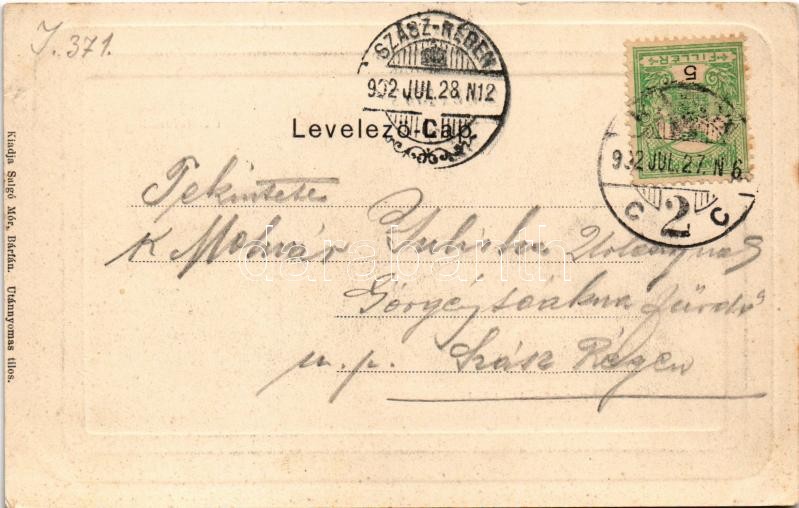 J. 371.
SZÁSZ-RÉGEN
902 JUL. 28. N12
C
FILLÉR
5
902 JUL. 27. N 6
C 2 C
Levelező-Lap
Tekintetes
K Molnár
Görgéjsóakna fürdő
u. p. Szász Régen
Kiadja Salgó Mór, Bártfán. Utánnyomas tilos.
darabanth